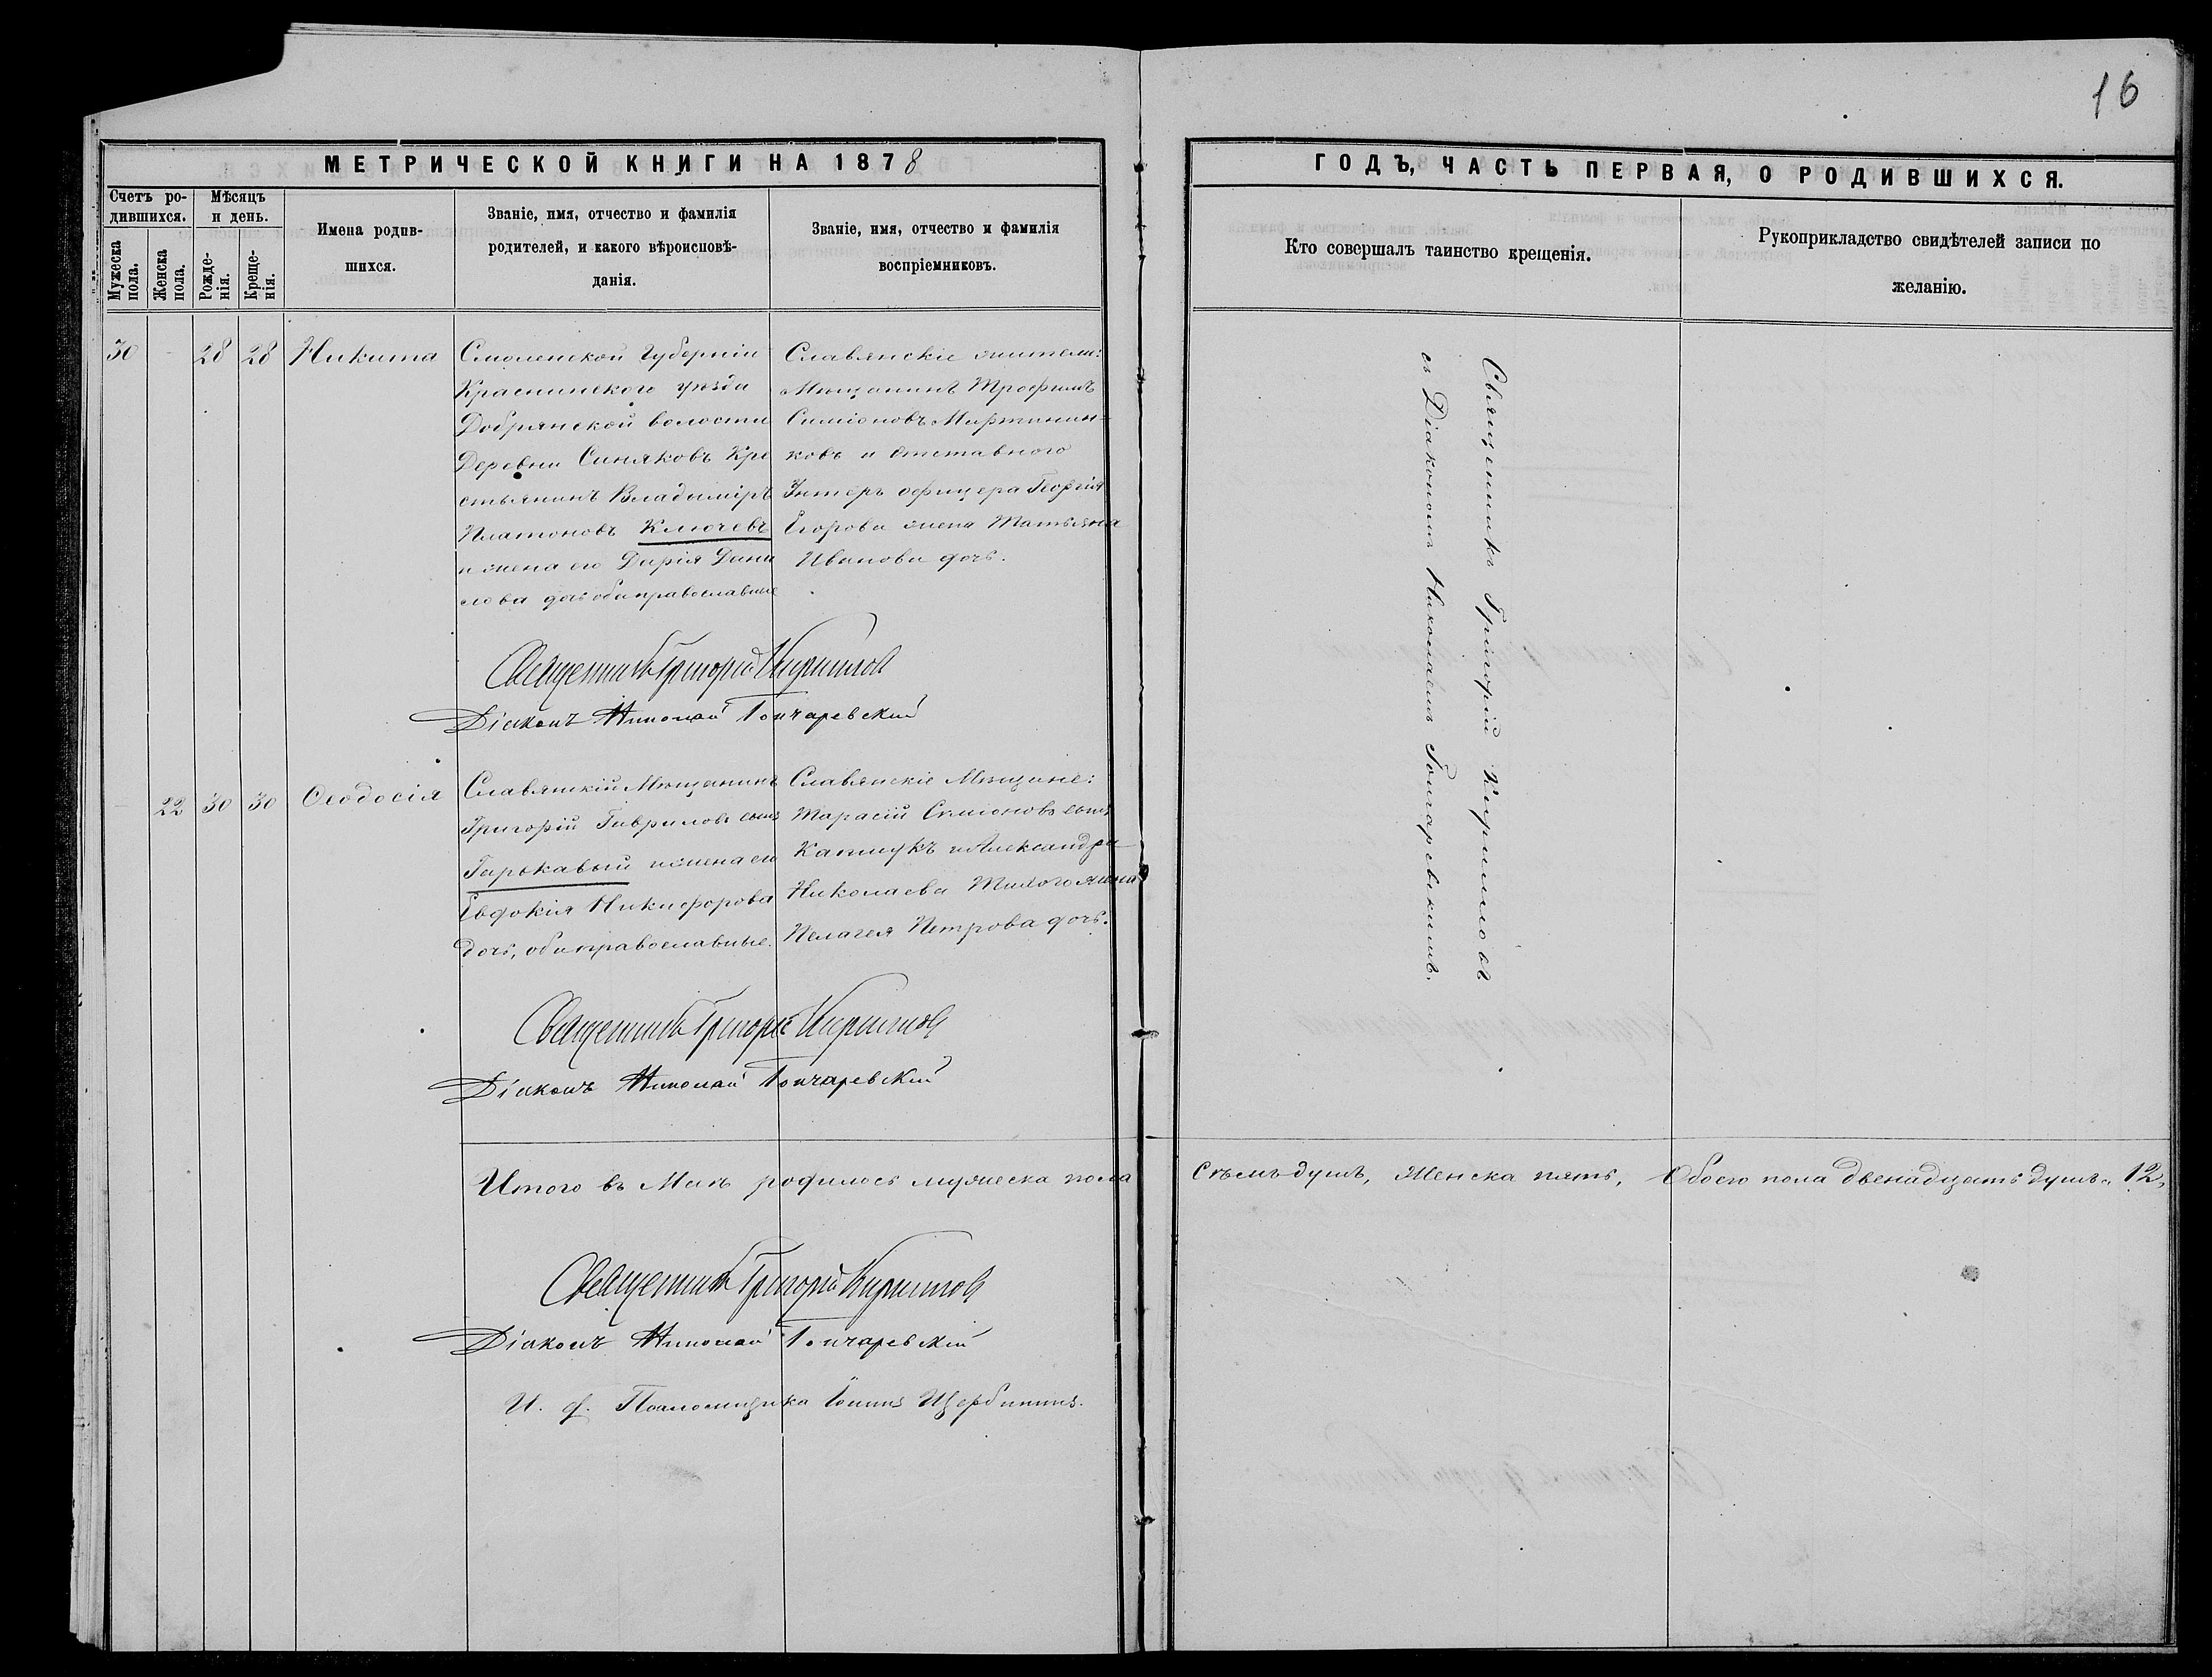 16
МЕТРИЧЕСКОЙ КНИГИ НА 1878
ГОДЪ, ЧАСТЬ ПЕРВАЯ, О РОДИВШИХСЯ.
Счетъ ро-
дившихся.
Мужеска
пола.
Женска
пола.
Мѣсяцъ
и день.
Рожде-
нія.
Креще-
нія.
Имена родив-
шихся.
Званіе, имя, отчество и фамилія
родителей, и какого вѣроисповѣ-
данія.
Званіе, имя, отчество и фамилія
воспріемниковъ.
Кто совершалъ таинство крещенія.
Рукоприкладство свидѣтелей записи по
желанію.
30 - 28 28 Никита
Смоленской Губерніи
Краснинскаго уѣзда
Добрянской волости
Деревни Синяковъ Кре
стьянинъ Владиміръ
Платоновъ Ключевъ
и жена его Дарія Дани
лова дочь оба православные
Славянскіе жители:
Мѣщанинъ Трофимъ
Симіоновъ Мартинен-
ковъ и отставного
Унтеръ офицера Георгія
Егорова жена Татьяна
Иванова дочь.
Священникъ Григорій Кирилловъ
Діаконъ Николай Гончаревскій
22 30 30 Ѳеодосія
Славянскій Мѣщанинъ
Григорій Гавриловъ сынъ
Гарькавый и жена его
Евдокія Никифорова
дочь, оба православные.
Славянскіе Мѣщане:
Тарасій Симіоновъ сынъ
и Александра
Николаева жена
Пелагея Петрова дочь.
Священникъ Григорій Кирилловъ
Діаконъ Николай Гончаревскій
Священникъ Григорій Кирилловъ
съ Діакономъ Николаемъ Гончаревскимъ.
Итого въ Маѣ родилось мужеска пола
Сѣмь душъ, Женска пять, Обоего пола двенадцать душъ „12„
Священникъ Григорій Кирилловъ
Діаконъ Николай Гончаревскій
И. д. Псаломщика Іоаннъ Щербининъ.